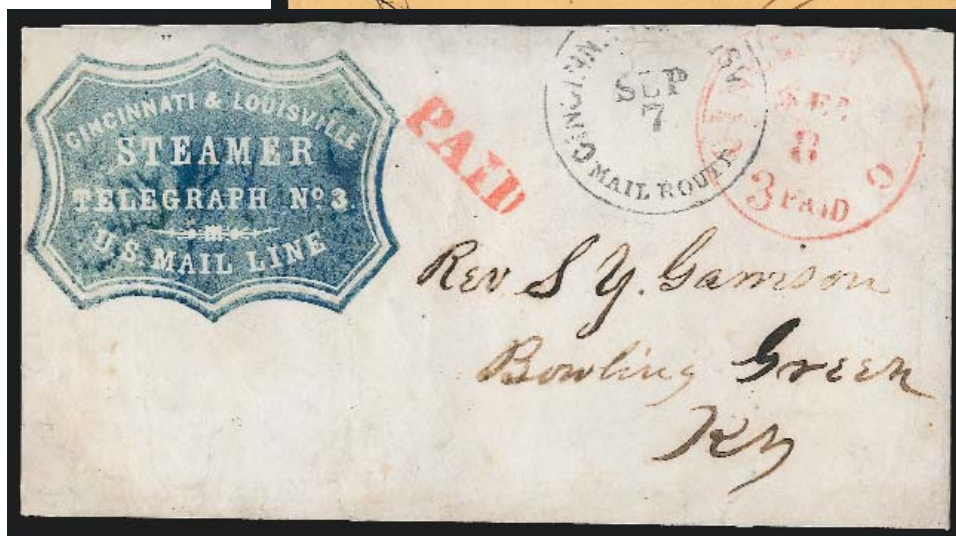 CINCINNATI & LOUISVILLE
STEAMER
TELEGRAPH Nº 3.
U.S. MAIL LINE
PAID
SEP
7
MAIL ROUTE
8
3 PAID
Rev S Y. Garrison
Bowling Green
Ky